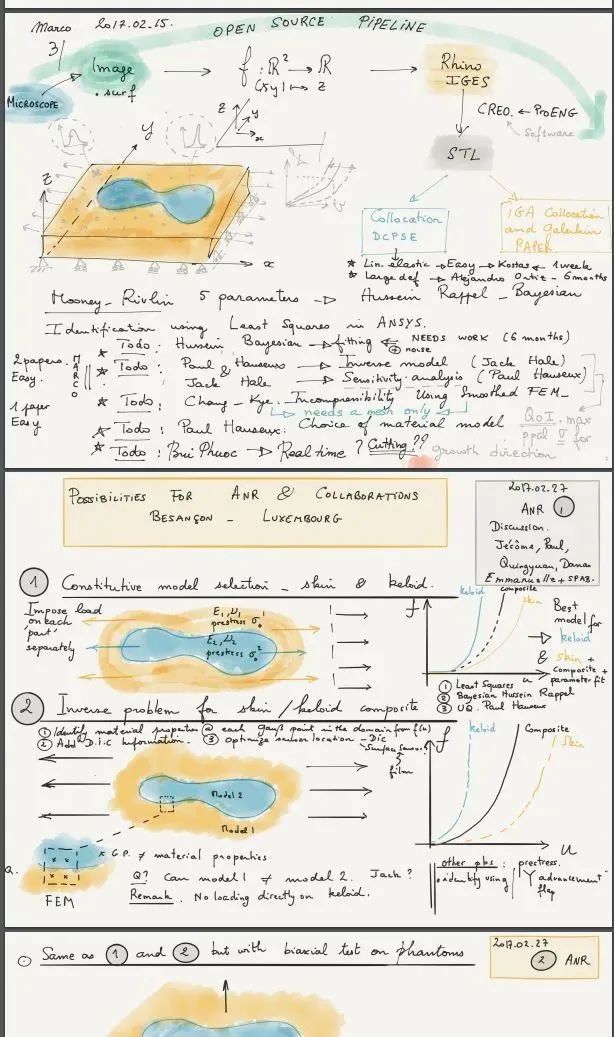 Marco 2017.02.15.
OPEN SOURCE PIPELINE
3)
Image
. surf
MICROSCOPE
f : R² → R
(x,y) → z
Rhino
IGES
CREO. ← ProENG
Software
STL
z
y
x
y
z
x
Collocation
DCPSE
IGA Collocation
and Galerkin
PAPER
* Lin. elastic → Easy → Kostas ← 1 week
* Large def → Alejandro Ortiz - 6 months
Mooney-Rivlin 5 parameters → Hussein Rappel - Bayesian
Identification using Least Squares in ANSYS.
* Todo: Husein Bayesian → fitting ⇐ NEEDS WORK (6 months)
⊕ noise
2 papers.
Easy.
MARCO
* Todo: Paul Hauseux → Inverse model (Jack Hale)
& Jack Hale → Sensitivity analysis (Paul Hauseux)
1 paper
Easy
* Todo: Chang-Kye: Incompressibility Using Smoothed FEM_
needs a mesh only
* Todo: Paul Hauseux: Choice of material model
QoI. max
ppal σ for
* Todo: Bui Phuoc → Real time ? Cutting??
growth direction
POSSIBILITIES FOR ANR & COLLABORATIONS
BESANÇON - LUXEMBOURG
2017.02.27
ANR 1
Discussion.
Jérôme, Paul,
Qingyuan, Danas
Emmanuelle + SPAB.
1 Constitutive model selection - skin & keloid.
Impose load
on each
"part"
separately
E₁, ν₁
prestress σ₀¹
E₂, ν₂
prestress σ₀²
f
keloid
composite
skin
u
Best
model for
→ keloid
& skin +
composite +
parameter fit
1 Least Squares
2 Bayesian Hussein Rappel
3 UQ. Paul Hauseux
2 Inverse problem for skin/keloid composite
1 Identify material properties @ each gauss point in the domain from f(u)
2 Add D.i.C information. 3 Optimize sensor location - Dic
Surface Sensor?
film
Model 2
Model 1
f
Keloid
Composite
Skin
u
× G.P. ≠ material properties
FEM
Q? Can model 1 ≠ model 2. Jack?
Remark. No loading directly on keloid.
other pbs: prestress.
identify using "Y advancement"
flap
⊙ Same as 1 and 2 but with biaxial test on phantoms
2017.02.27
2 ANR